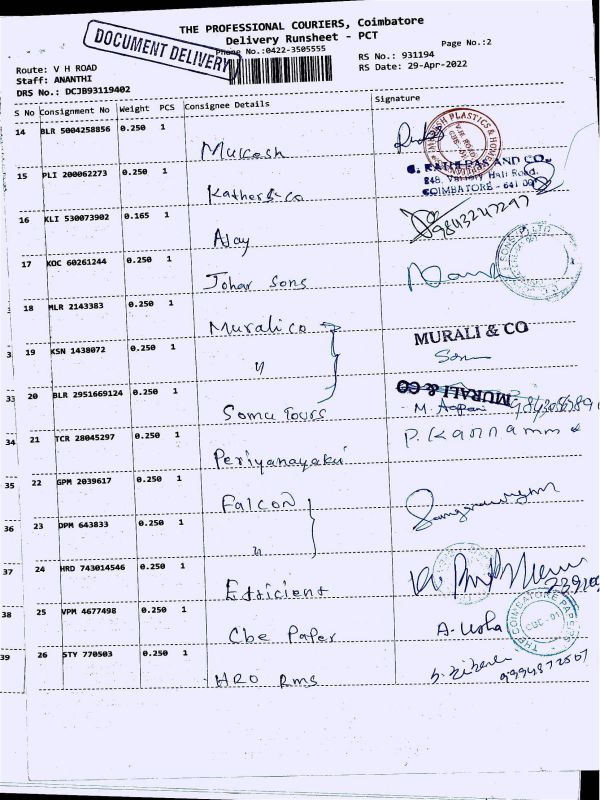 THE PROFESSIONAL COURIERS, Coimbatore
Delivery Runsheet - PCT
DOCUMENT DELIVERY
Phone No.:0422-3505555
Page No.:2
Route: V H ROAD
RS No.: 931194
Staff: ANANTHI
RS Date: 29-Apr-2022
DRS No.: DCJB93119402
S No Consignment No Weight PCS Consignee Details Signature
14 BLR 5004258856 0.250 1
Mukesh
15 PLI 200062273 0.250 1
KATHER AND CO.
848, Variety Hall Road,
COIMBATORE - 641 001
Kather & co
16 KLI 530073902 0.165 1
9843247297
Ajay
17 KOC 60261244 0.250 1
Johar Sons
18 MLR 2143383 0.250 1
Murali co
MURALI & CO
3 19 KSN 1438072 0.250 1
"
33 20 BLR 2951669124 0.250 1
MURALI & CO
Somu Tours
34 21 TCR 28045297 0.250 1
Periyanayaki
35 22 GPM 2039617 0.250 1
Falcon
36 23 DPM 643833 0.250 1
"
37 24 HRD 743014546 0.250 1
Efficient
38 25 VPM 4677498 0.250 1
A. Usha
Cbe Paper
39 26 STY 770503 0.250 1
9994872507
HRO RMS